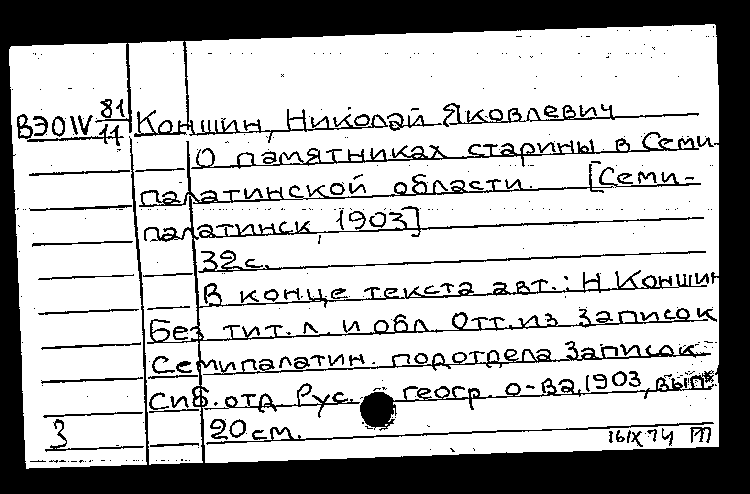 ВЭОIV 81/11 Коншин, Николай Яковлевич
О памятниках старины в Семи-
палатинской области. [Семи-
палатинск, 1903]
32 с.
В конце текста авт.: Н Коншин
Без тит. л. и обл. Отт. из Записок
Семипалатин. подотдела Записок
Сиб. отд Рус. геогр. о-ва, 1903, вып
3 20 см.
16IX 74